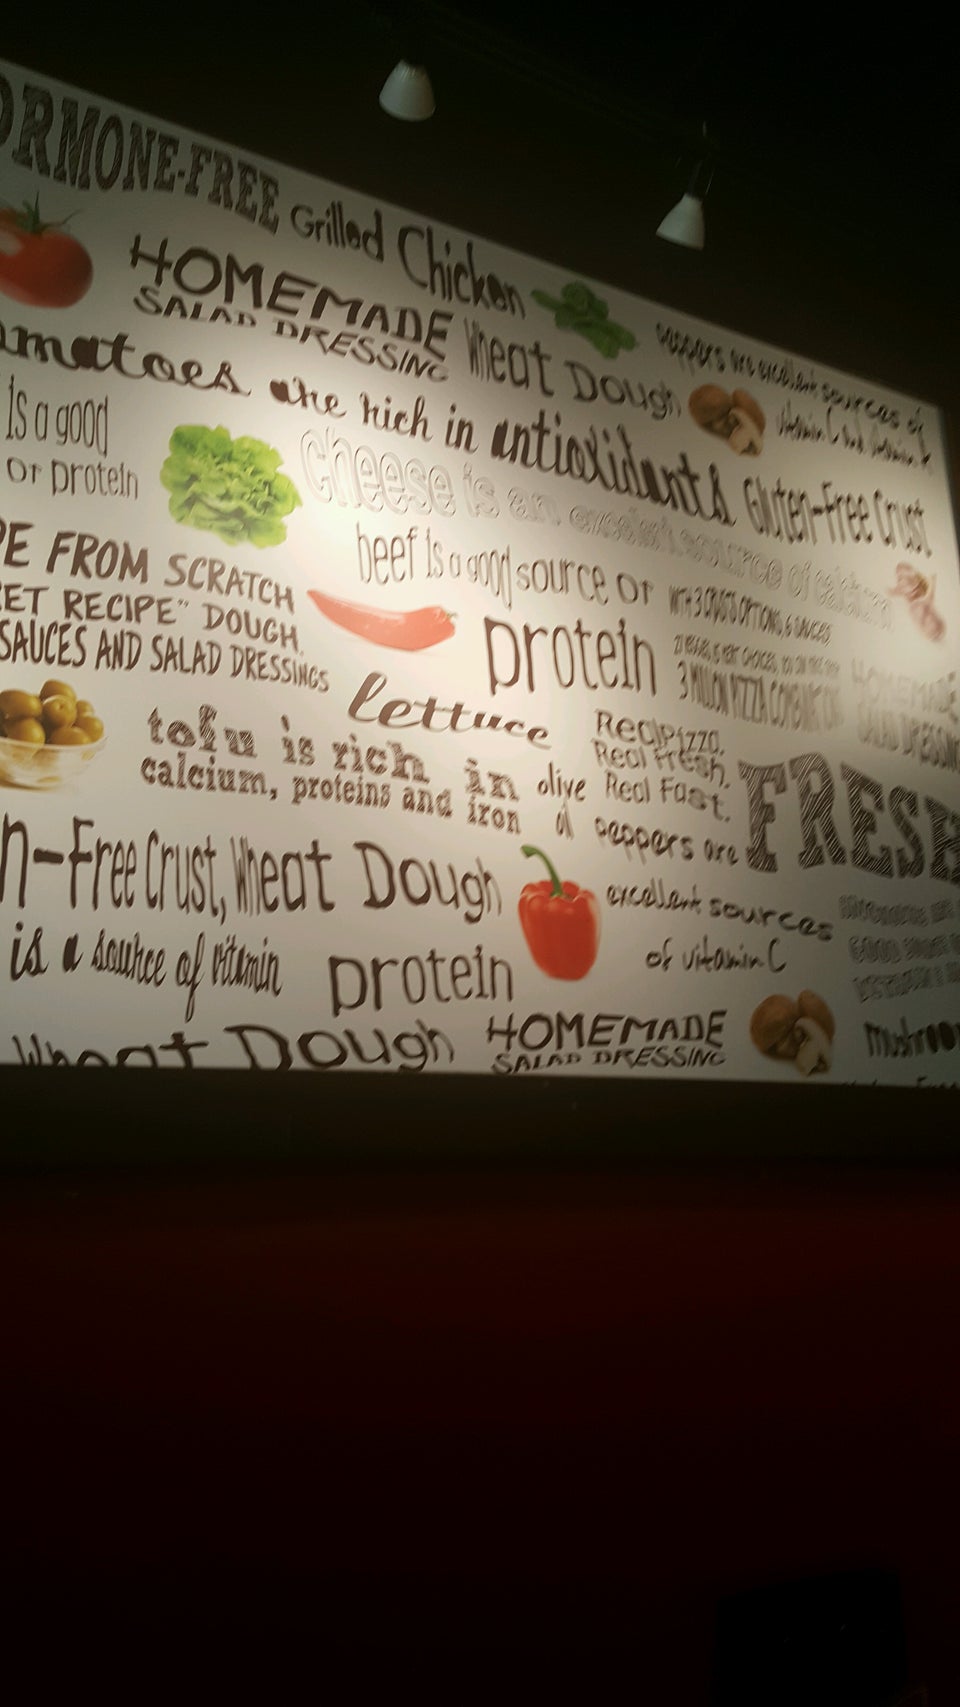 ORMONE-FREE Grilled Chicken
HOMEMADE
SALAD DRESSING
Wheat Dough
peppers are excellent sources of
vitamin C and
omatoes are rich in antioxidants
Gluten-Free Crust
is a good
or protein
cheese is an excellent source of calcium
beef is a good source or
protein
WITH 3 CRUST OPTIONS, 6 SAUCES
3 MILLION PIZZA COMBINATION
HOMEMADE
SALAD DRESSING
PE FROM SCRATCH
ET RECIPE" DOUGH.
SAUCES AND SALAD DRESSINGS
lettuce
Real Pizza.
Real Fresh.
Real Fast.
FRESH
tofu is rich in
calcium, proteins and iron
olive
oil
peppers are
excellent sources
of vitamin C
n-Free Crust, Wheat Dough
is a source of vitamin
protein
GOOD
Wheat Dough
HOMEMADE
SALAD DRESSING
mushroo